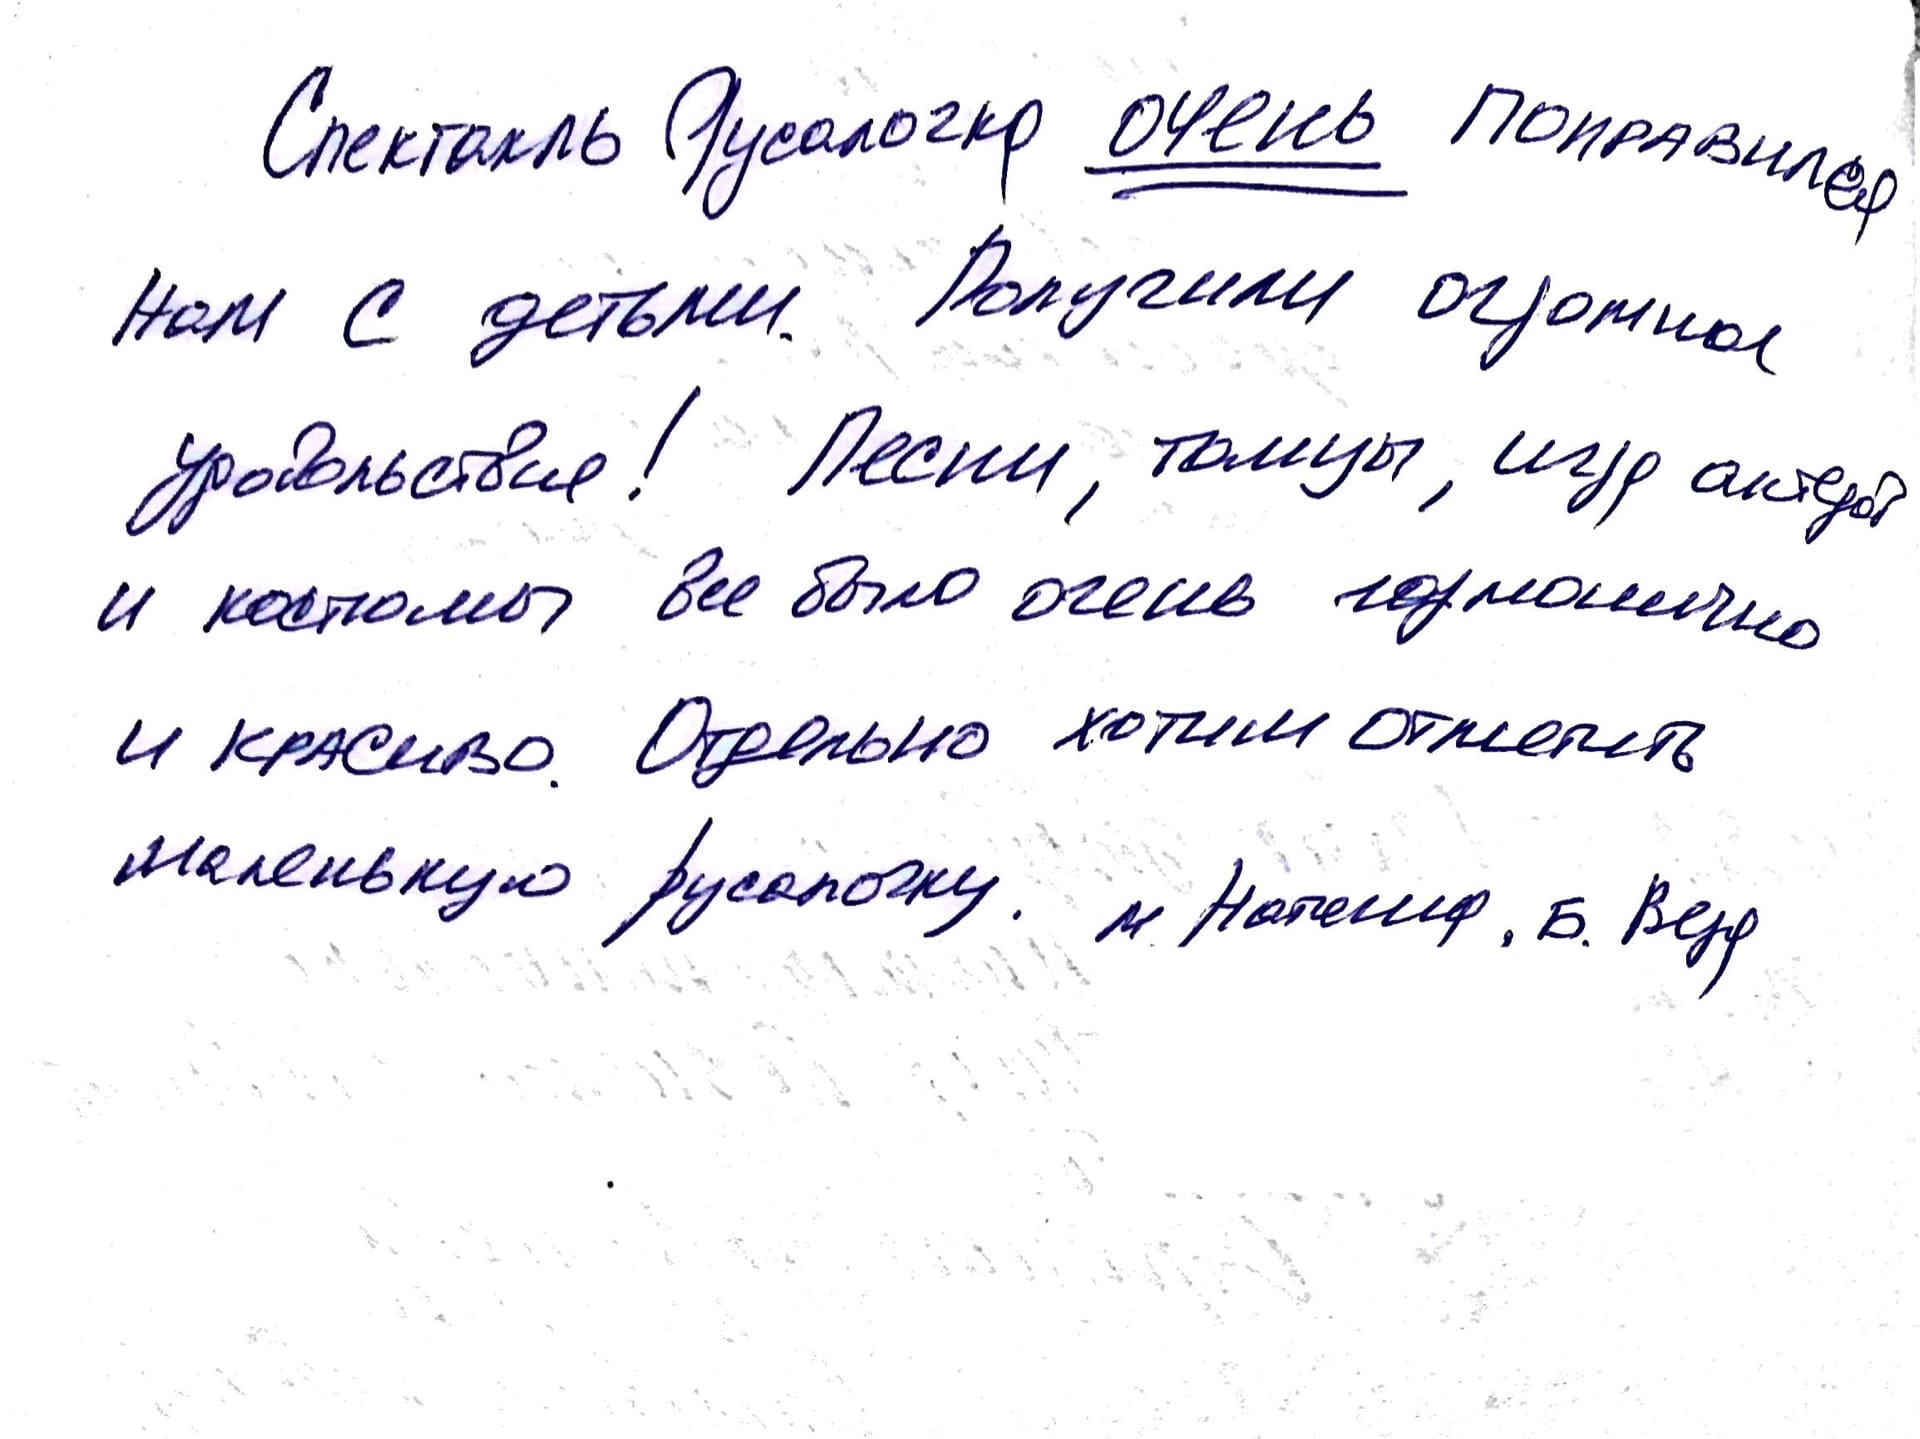 Спектакль Русалочка очень понравился
нам с детьми. Получили огромное
удовольствие! Песни, танцы, игра актеров
и костюмы все было очень гармонично
и красиво. Отдельно хотим отметить
маленькую русалочку. м. Наталия, Б. Вера